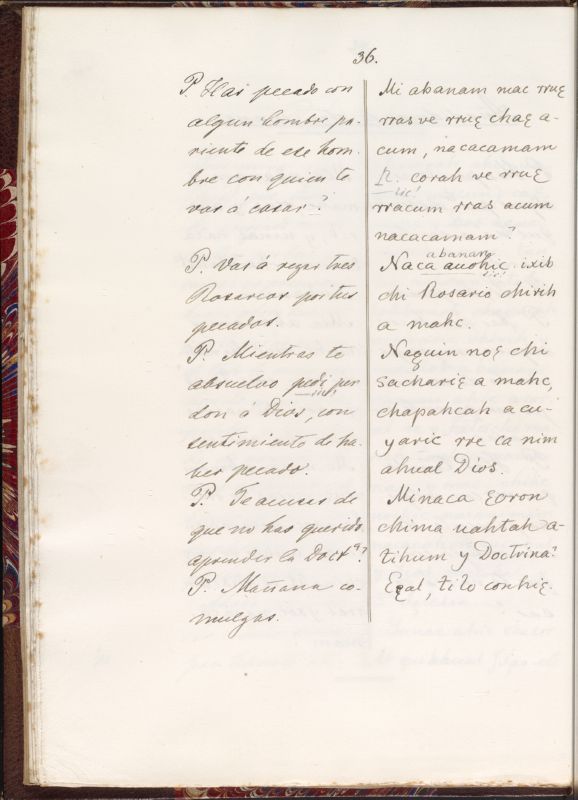 36.
P. Has pecado con
algun hombre pa-
riente de ese hom-
bre con quien te
vas á casar?
P. Vas á rezar tres
Rosarios por tus
pecados.
P. Mientras te
absuelvo pedi, per
sic!
don á Dios, con
sentimiento de ha-
ber pecado.
P. Te acusas de
que no has querido
aprender la Doctª?
P. Mañana co-
mulgas.
Mi abanam mac rruɛ
rras ve rruɛ chaɛ a-
cum, nacacamam
R. corah ve rruɛ
sic!
rracum rras acum
nacacamam?
abanam
Naca auohic ixib
sic!
chi Rosario chirih
a mahc.
Naquin noɛ chi
sachariɛ a mahc,
chapahcah acu-
yaric rre ca nim
ahual Dios.
Minaca ɛoron
chima uahtah a-
tihum y Doctrina?
Eɛal, tilo conhiɛ.